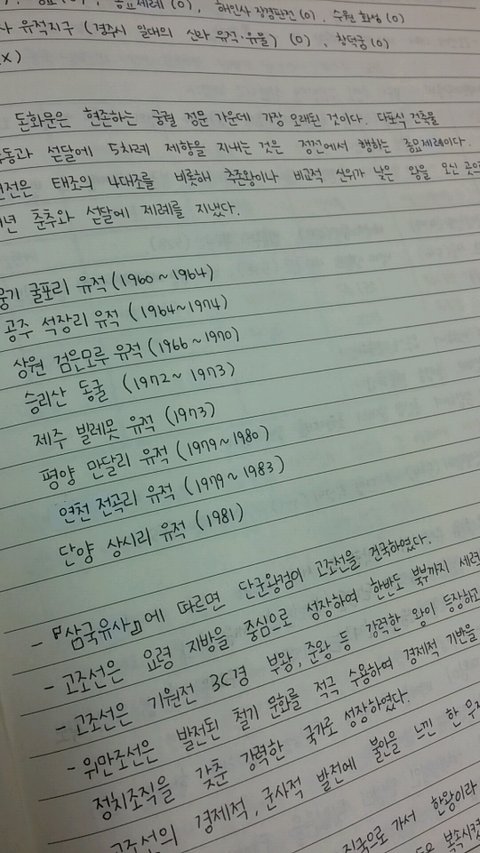 종묘제례 (O), 해인사 장경판전 (O), 수원 화성 (O)
유적지구 (경주시 일대의 신라 유적·유물) (O), 창덕궁 (O)
(X)
돈화문은 현존하는 궁궐 정문 가운데 가장 오래된 것이다. 다포식 건축물
섣달에 5차례 제향을 지내는 것은 정전에서 행하는 중요제례이다.
태조의 4대조를 비롯해 추존왕이나 비교적 신위가 낮은 왕을 모신 곳으
춘추와 섣달에 제례를 지냈다.
웅기 굴포리 유적 (1960~1964)
공주 석장리 유적 (1964~1974)
상원 검은모루 유적 (1966~1970)
승리산 동굴 (1972~1973)
제주 빌레못 유적 (1973)
평양 만달리 유적 (1979~1980)
연천 전곡리 유적 (1979~1983)
단양 상시리 유적 (1981)
- 『삼국유사』에 따르면 단군왕검이 고조선을 건국하였다.
- 고조선은 요령 지방을 중심으로 성장하여 한반도 북부까지 세력
- 고조선은 기원전 3C경 부왕, 준왕 등 강력한 왕이 등장하고
- 위만조선은 발전된 철기 문화를 적극 수용하여 경제적 기반을
정치조직을 갖춘 강력한 국가로 성장하였다.
고조선의 경제적, 군사적 발전에 불안을 느낀 한 무제
진국으로 가서 한왕이라
복속시켰